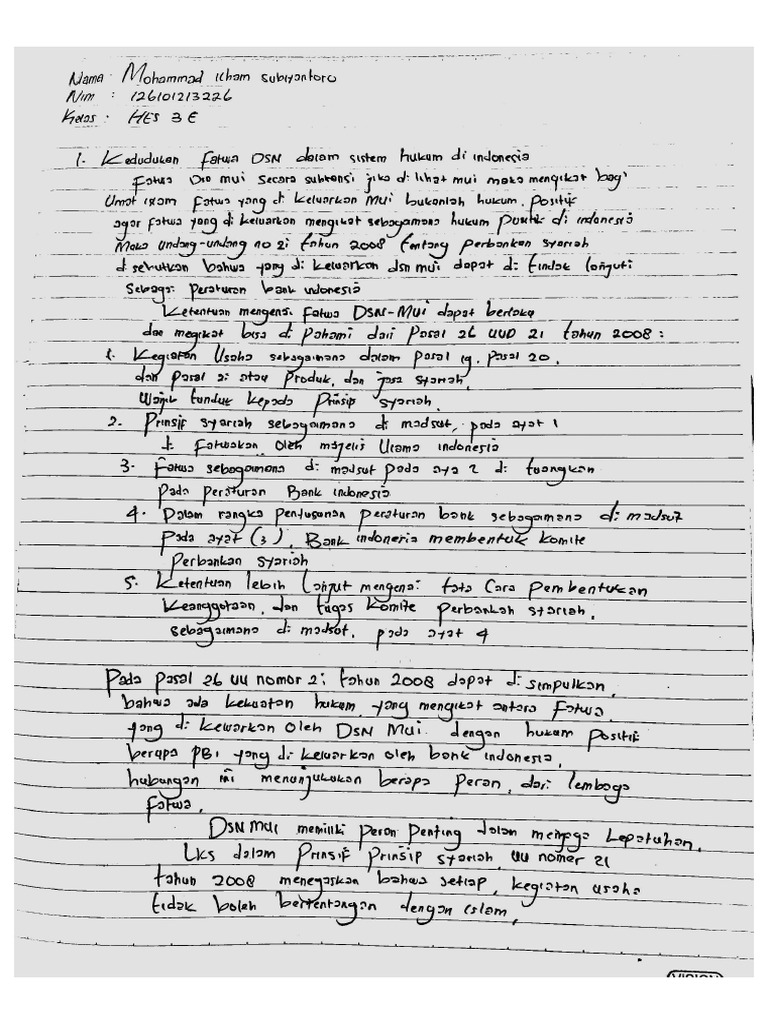 Nama : Mohammad Ilham Subiyantoro
Nim : 126101213226
Kelas : HES 3 E
1. Kedudukan Fatwa DSN dalam sistem hukum di indonesia
Fatwa Dsn mui secara subtansi jika di lihat mui maka mengikat bagi
Umat islam Fatwa yang di keluarkan MUI bukanlah hukum positif
agar fatwa yang di keluarkan mengikat sebagamana hukum Positif di indonesia
Maka undang-undang no 21 tahun 2008 tentang perbankan syariah
disebutkan bahwa yang di keluarkan dsn mui dapat di tindak lanjuti
Sebagai Peraturan bank indonesia
Ketentuan mengenai fatwa DSN-Mui dapat berlaku
dan megikat bisa di Pahami dari Pasal 26 UUD 21 tahun 2008 :
1. Kegiatan Usaha sebagaimana dalam pasal 19, Pasal 20,
dan Pasal 21 atau Produk, dan jasa syariah,
Wajib tunduk kepada Prinsip syariah.
2. Prinsif syariah sebagaimana di madsut, pada ayat 1
di Fatwakan oleh majelis Ulama indonesia
3. Fatwa sebagaimana di madsut pada aya 2 di tuangkan
Pada Peraturan Bank indonesia
4. Dalam rangka penyusunan peraturan bank sebagaimana di madsut
Pada ayat (3), Bank indonesia membentuk komite
Perbankan syariah
5. Ketentuan lebih lanjut mengenai tata cara pembentukan
Keanggotaan, dan tugas komite perbankan syariah,
sebagaimana di madsut, pada ayat 4
Pada pasal 26 uu nomor 21 tahun 2008 dapat di simpulkan,
bahwa ada kekuatan hukum, yang mengikat antara Fatwa
yang di keluarkan oleh DSN MUI. dengan hukum positif
berapa PBI yang di keluarkan oleh bank indonesia,
hubungan ini menunjukukan berapa peran, dari lembaga
fatwa,
DSN MUI memiliki peran penting dalam menjaga kepatuhan,
LKS dalam Prinsif Prinsip syariah, uu nomer 21
tahun 2008 menegaskan bahwa setiap, kegiatan usaha
tidak boleh bertentangan dengan islam,